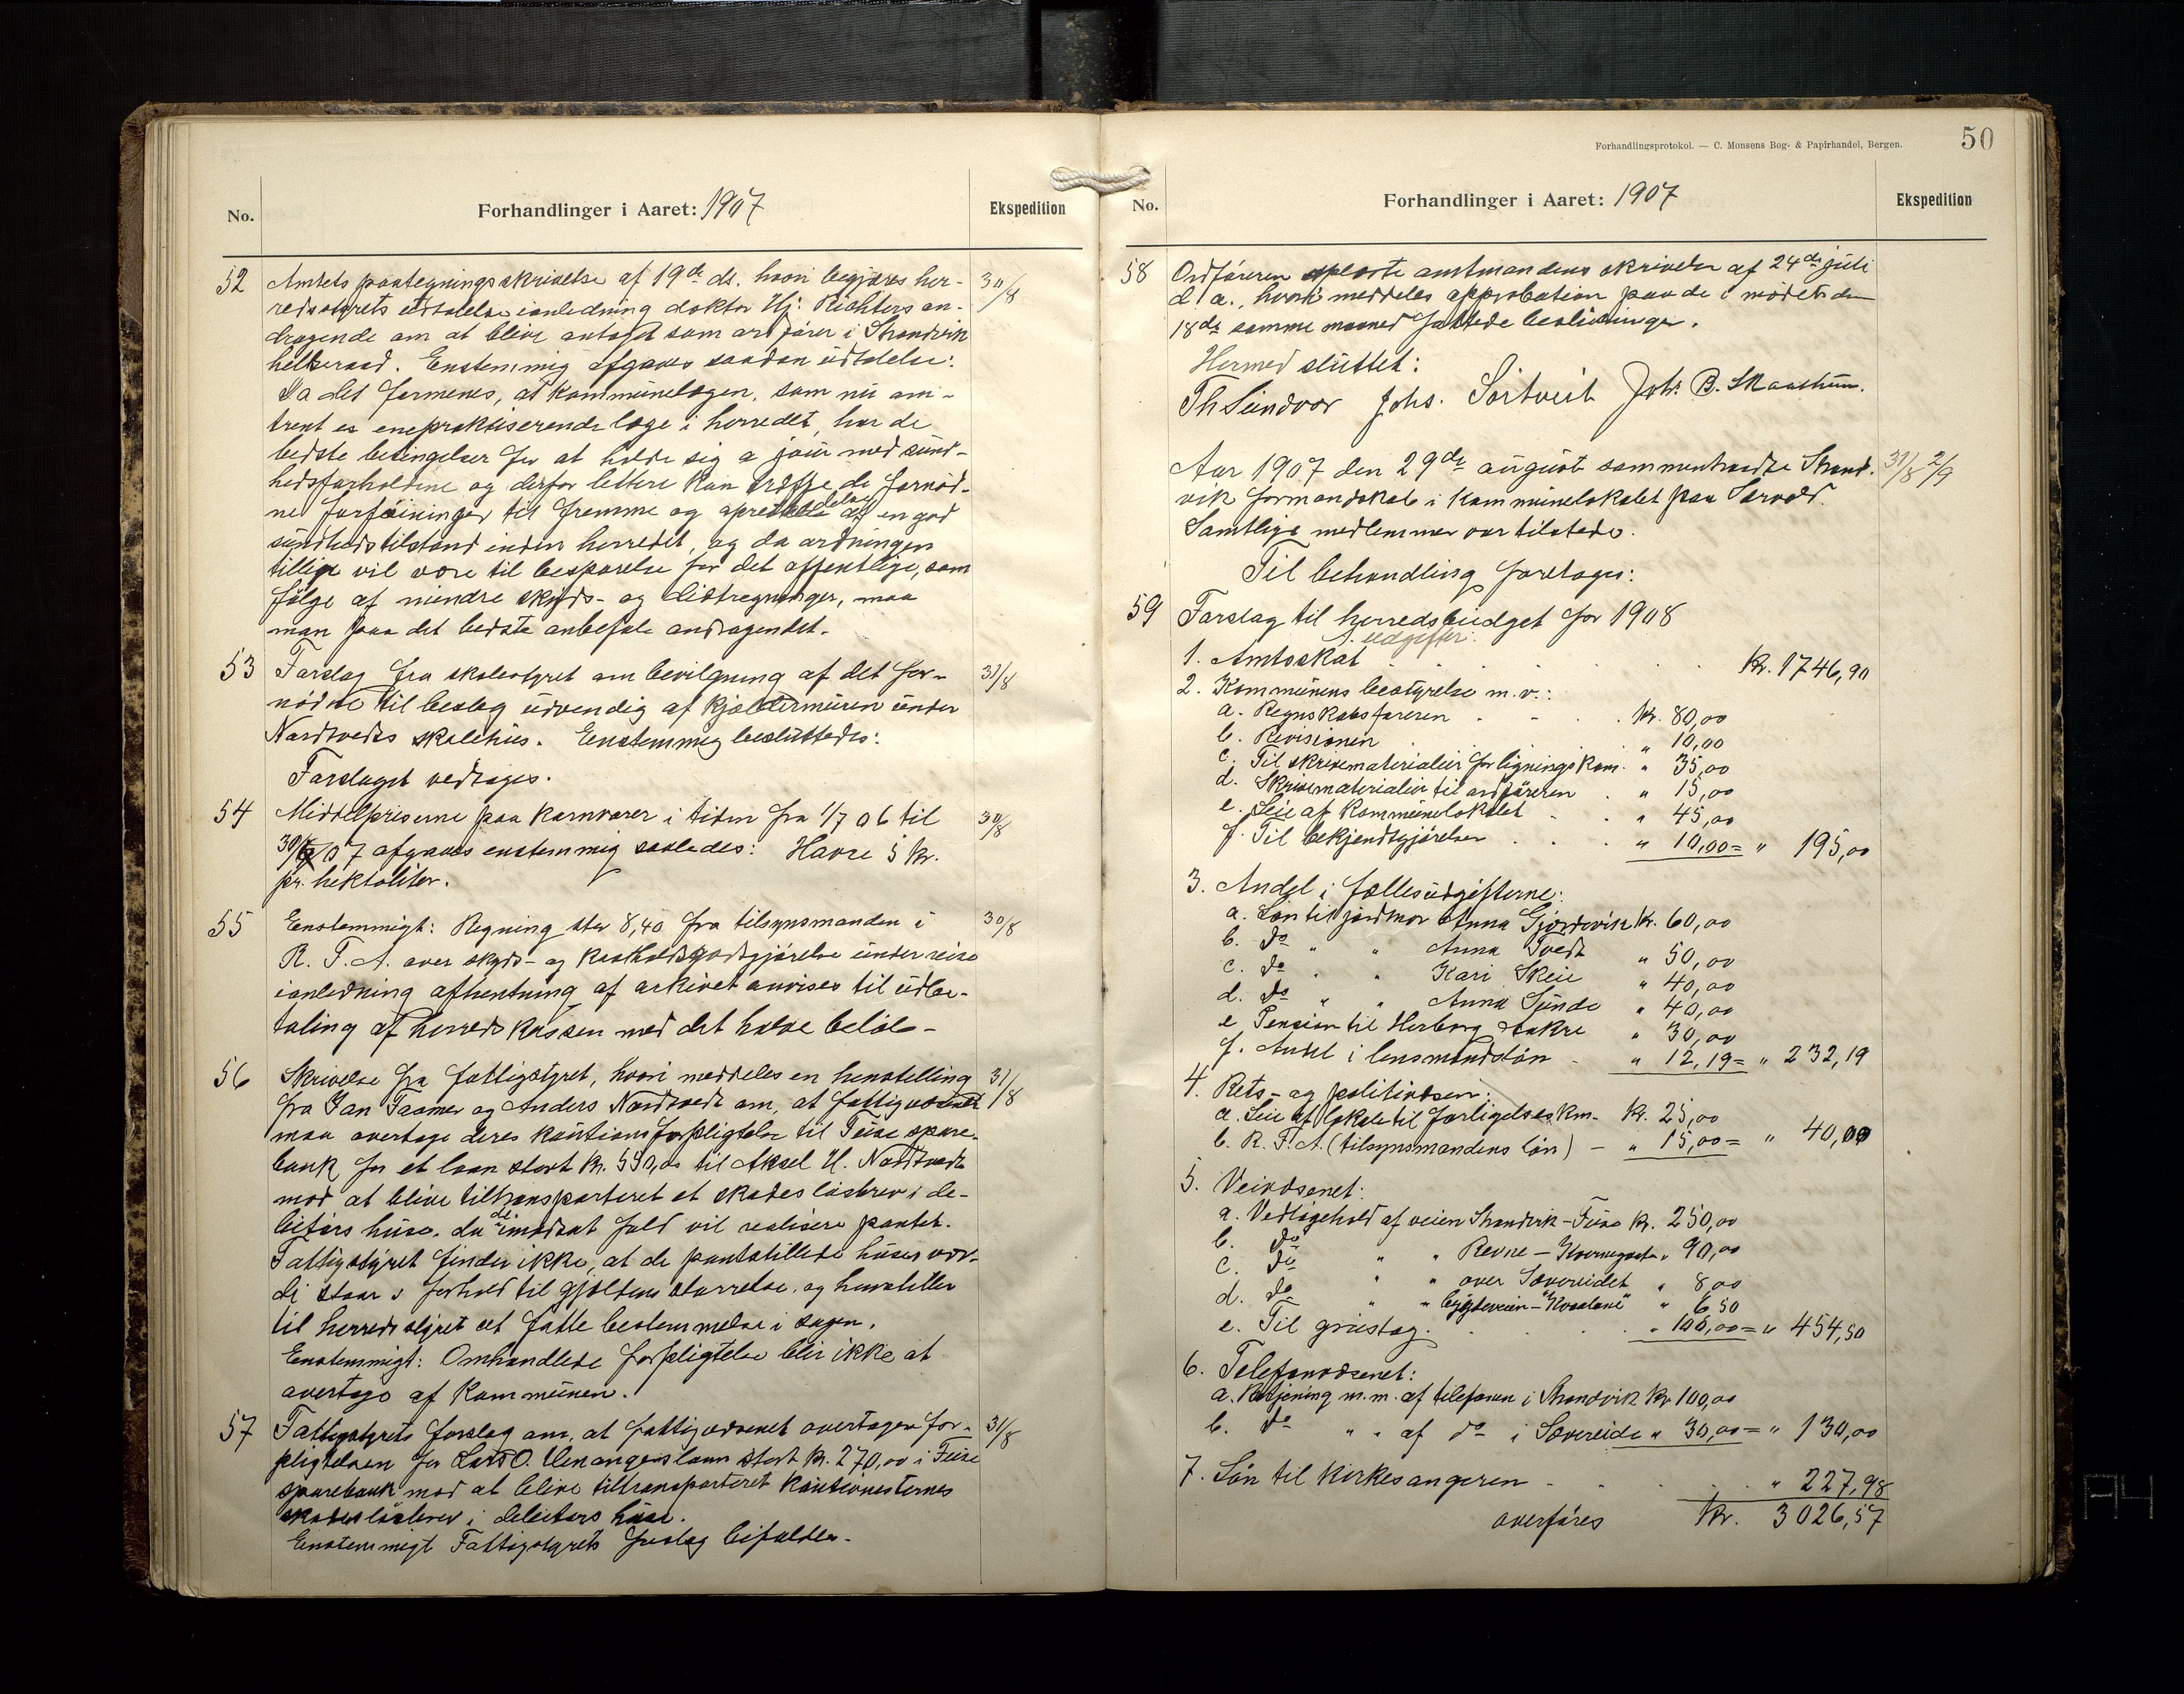 No.
Forhandlinger i Aaret: 1907
Ekspedition
52
Amtets paategningsskrivelse af 19de ds. hvori begjæres her-
30/8
redsstyrets udtalelse i anledning doktor Hj: Richters an-
dragende om at blive antaget som ordfører i Strandvik
helseraad. Enstemmig afgaves saadan udtalelse:
Da det formenes, at kommunelægen, som nu om-
trent er enepraktiserende læge i herredet, har de
bedste betingelser for at holde sig a jour med sund-
hedsforholdene og derfor lettere kan træffe de fornød-
ne forføininger til fremme og af en god
sundhedstilstand inden herredet, og da ordningen
tillige vil være til besparelse for det offentlige, som
følge af mindre skyds- og diætregninger, maa
man paa det bedste anbefale andragendet.
53
Forslag fra skolestyret om bevilgning af det for-
31/8
nødne til beslag udvendig af kjældermuren under
Nordtvedts skolehus. Enstemmig besluttedes:
Forslaget vedtages.
54
Middelpriserne paa kornvarer i tiden fra 1/7 06 til
30/8
30/6 07 afgaves enstemmig saaledes: Havre 5 kr.
pr. hektoliter.
55
Enstemmigt: Regning stor 8,40 fra tilsynsmanden i
30/8
R. F. A. over skyds- og kostholdsgodtgjørelse under reise
i anledning afhentning af arkivet anvises til udbe-
taling af herredskassen med det halve beløb -
56
Skrivelse fra fattigstyret, hvori meddeles en henstilling
31/8
fra Jan Taamer og Anders Nordtvedt om, at fattigvæsenet
maa overtage deres kautionsforpligtelse til Fuse spare-
bank for et laan stort kr. 550,00 til Aksel H. Nordtvedt
mod at blive tiltransporteret et skadesløsbrev i de-
bitors huse, da de i modsat fald vil realisere pantet.
Fattigstyret finder ikke, at de pantstillede huses vær-
di staar i forhold til gjældens størrelse, og henstiller
til herredsstyret at fatte bestemmelse i sagen.
Enstemmigt: Omhandlede forpligtelse blir ikke at
overtage af kommunen.
57
Fattigstyrets forslag om, at fattigvæsenet overtager for-
31/8
pligtelsen for Lars O. Henangers laan stort kr. 270,00 i Fuse
sparebank mod at blive tiltransporteret kautionisternes
skadesløsbrev i debitors huse.
Enstemmigt Fattigstyrets forslag bifaldes.
Forhandlingsprotokol. — C. Monsens Bog- & Papirhandel, Bergen.
50
No.
Forhandlinger i Aaret: 1907
Ekspedition
58
Ordføreren oplæste amtmandens skrivelse af 24de juli
d. a., hvori meddeles approbation paa de i mødet den
18de samme maaned fattede beslutninger.
Hermed sluttet:
Th Sundvor Johs. Sörtveit Johs. B. Skaathun.
Aar 1907 den 29de august sammentraadte Strand-
31/8 2/9
vik formandskab i kommunelokalet paa Sævold.
Samtlige medlemmer var tilstede.
Til behandling foretoges:
59
Forslag til herredsbudget for 1908
A. udgifter:
1. Amtsskat . . . . . . kr. 1746,90
2. Kommunens bestyrelse m. v.:
a. Regnskabsføreren . . . kr. 80,00
b. Revisionen . . . " 10,00
c. Til skrivematerialier for ligningskom. " 35,00
d. Skrivematerialier til ordføreren . " 15,00
e. Leie af kommunelokalet . . " 45,00
f. Til bekjendtgjørelser . . . " 10,00 = " 195,00
3. Andel i fællesudgifterne:
a. Løn til jordmor Anna Gjørdsvik kr. 60,00
b. do " " Anna Tvedt " 50,00
c. do " " Kari Skeie " 40,00
d. do " " Anna Sunde " 40,00
e. Pension til Herborg Aakre " 30,00
f. Andel i lensmandsløn - " 12,19 = " 232,19
4. Rets- og politivæsen:
a. Leie af lokale til forligelseskm- kr. 25,00
b. R. F. A. (tilsynsmandens løn) — " 15,00 = " 40,00
5. Veivæsenet:
a. Vedligehold af veien Strandvik - Fuse kr. 250,00
b. do " " Revne - " 90,00
c. do " " over Sævereidet " 8,00
d. do " " bygdeveien - " 6,50
e. Til grustag . . . . " 100,00 = " 454,50
6. Telefonvæsenet:
a. Betjening m. m. af telefonen i Strandvik kr 100,00
b. do " " af do i Sævereide " 30,00 = " 130,00
7. Løn til kirkesangeren . . . . " 227,98
overføres kr. 3026,57